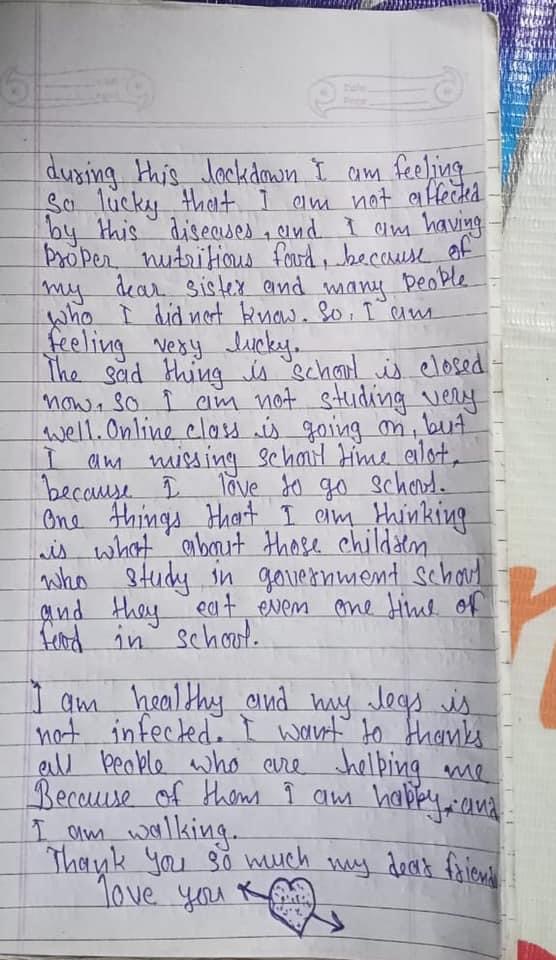 Date
Page
during this lockdown I am feeling
so lucky that I am not affected
by this diseases, and I am having
proper nutritious food, because of
my dear sister and many people
who I did not know. So, I am
feeling very lucky.
The sad thing is school is closed
now, so I am not studing very
well. Online class is going on, but
I am missing school time alot,
because I love to go school.
One things that I am thinking
is what about those children
who study in government school
and they eat even one time of
food in school.
I am healthy and my legs is
not infected. I want to thanks
all people who are helping me
Because of them I am happy, and
I am walking.
Thank you so much my dear friends
love you